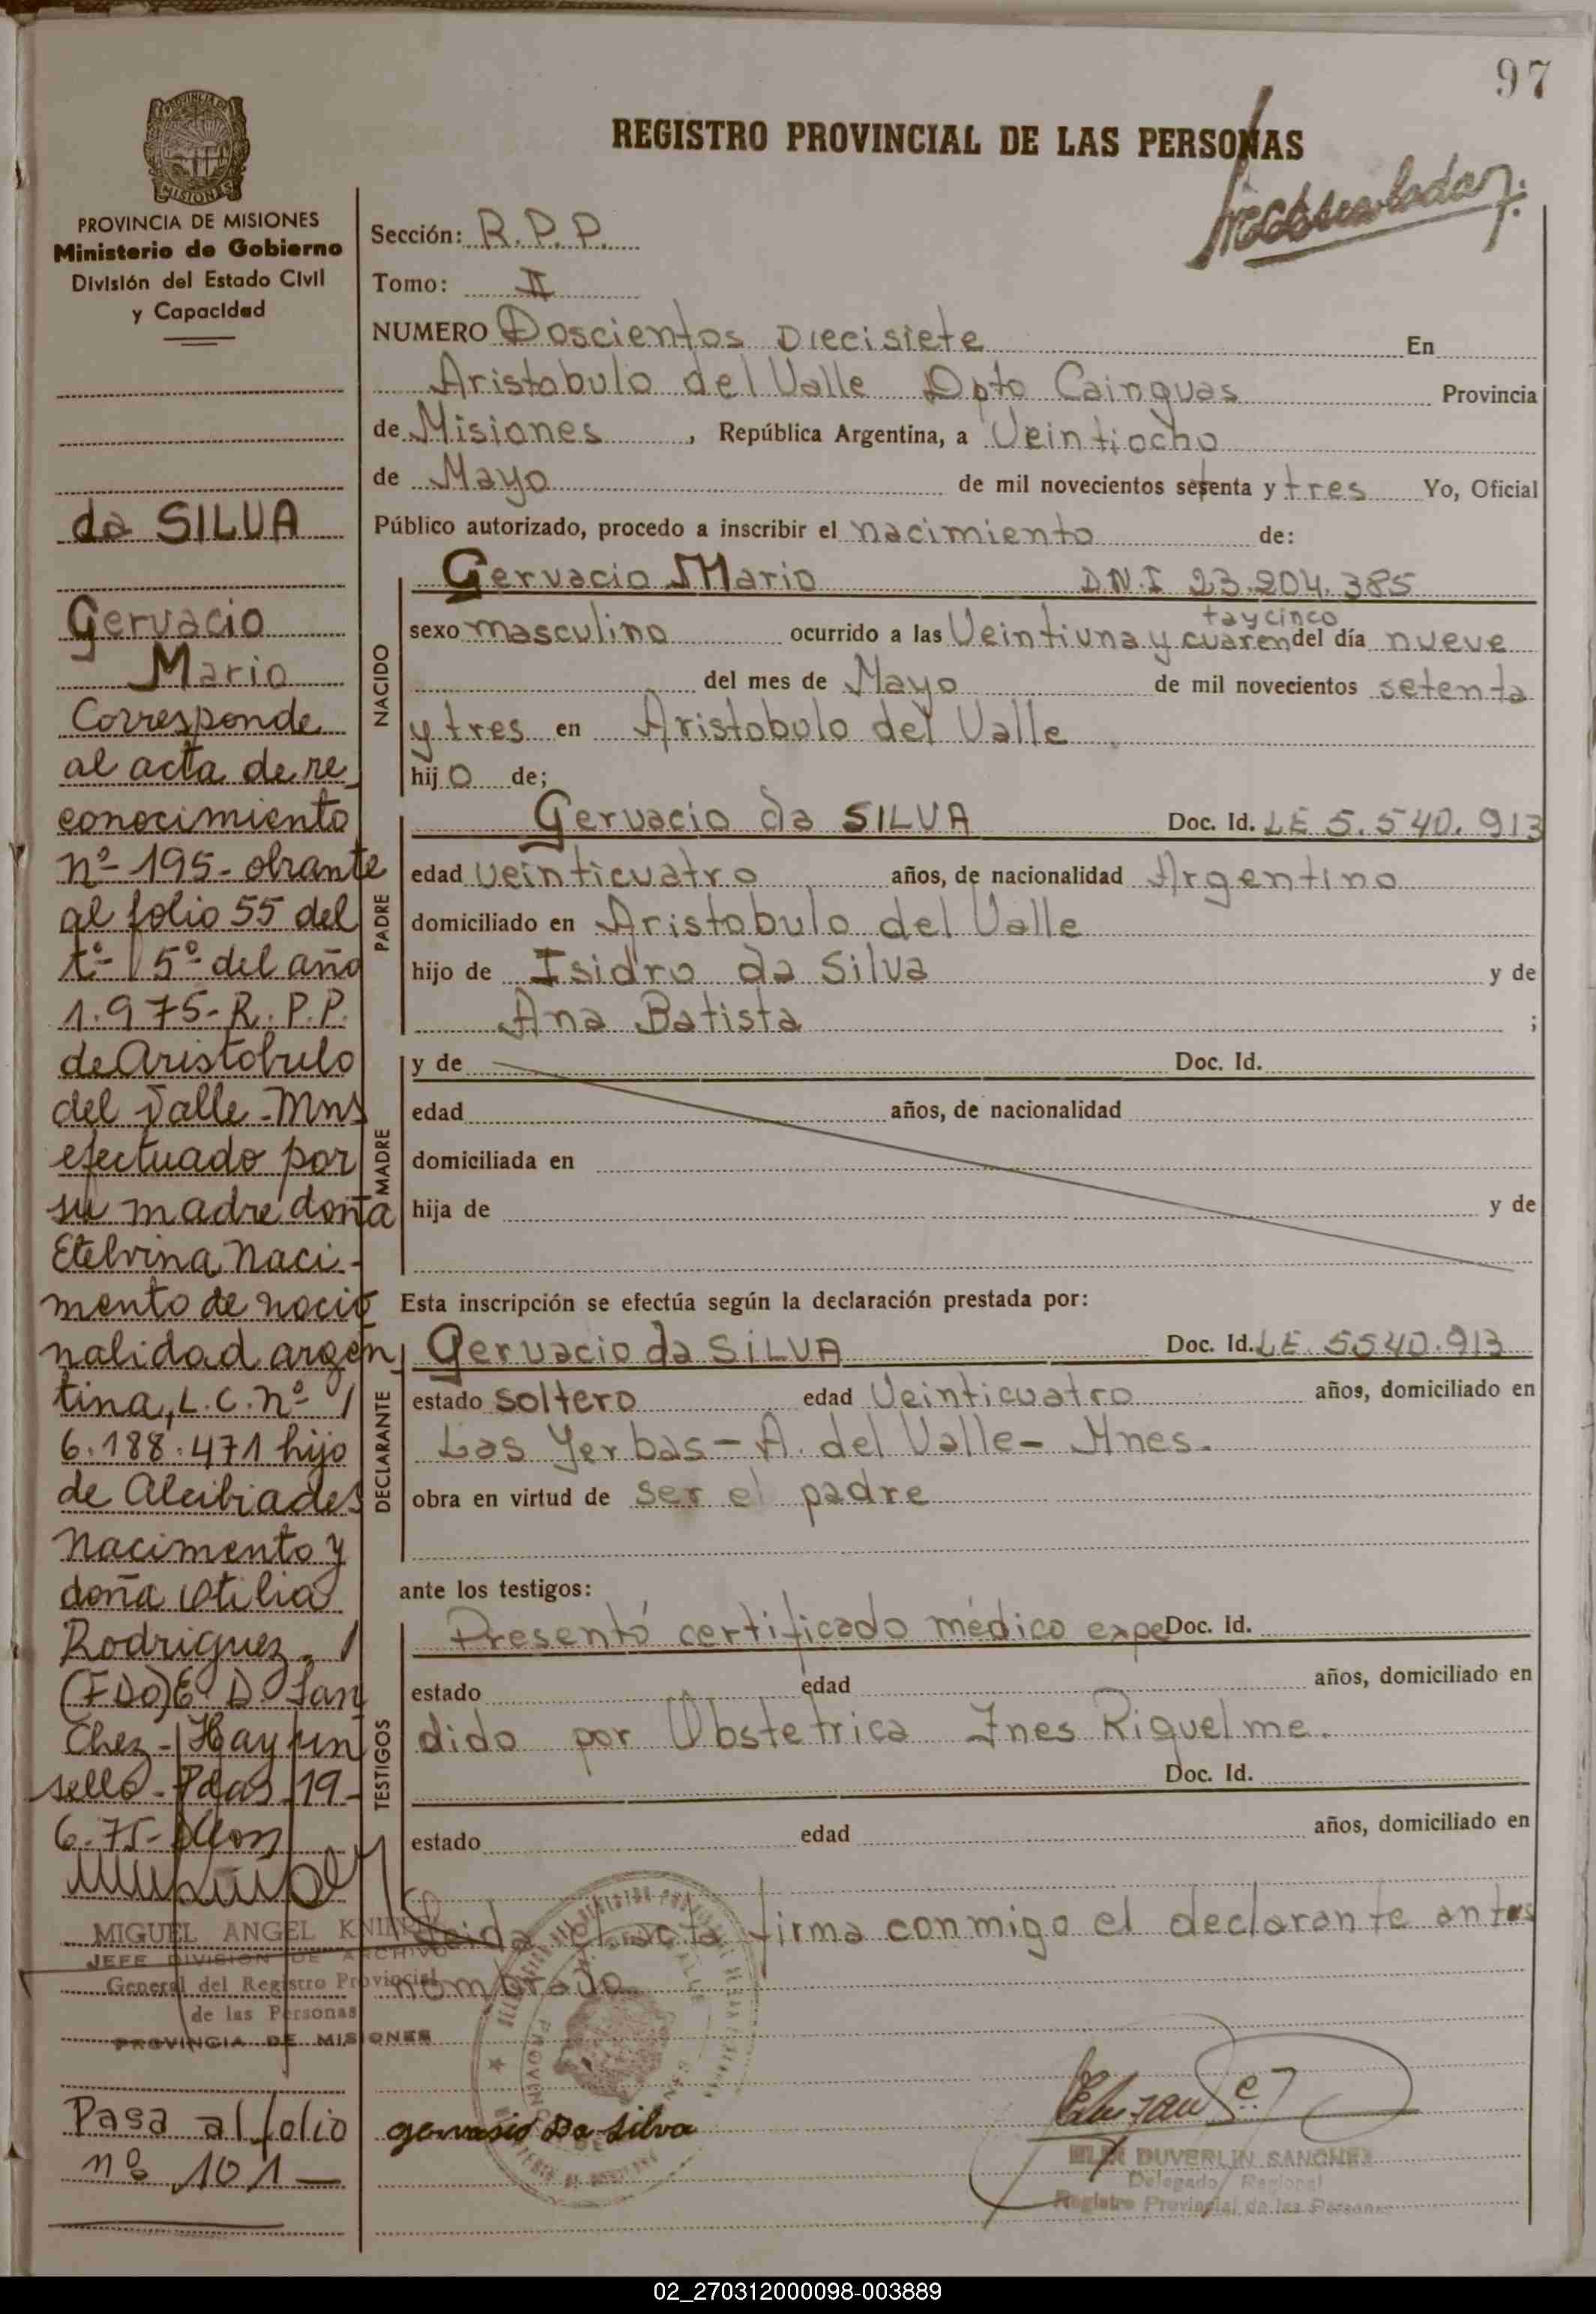 97
REGISTRO PROVINCIAL DE LAS PERSONAS
PROVINCIA DE MISIONES
Ministerio de Gobierno
División del Estado Civil
y Capacidad
da SILVA
Gervacio
Mario
Corresponde
al acta de re
conocimiento
nº 195- obrante
al folio 55 del
tº 5º del año
1.975- R. P. P.
de Aristobulo
del Valle - Mns
efectuado por
su madre doña
Etelvina Naci-
mento de nacio
nalidad argen
tina, L. C. nº
6.188.471 hijo
de Alcibiades
Nacimento y
doña Otilia
Rodriguez -
(FDO) E. D. San
chez - Hay un
sello - Pdas 19-
6-75-
MIGUEL ANGEL
JEFE DIVISION DE ARCHIVO
General del Registro Provincial
de las Personas
PROVINCIA DE MISIONES
Pasa al folio
nº 101
Sección: R. P. P.
Tomo: II
NUMERO Doscientos Diecisiete En
Aristobulo del Valle Dpto Cainguas Provincia
de Misiones, República Argentina, a Veintiocho
de Mayo de mil novecientos setenta y tres Yo, Oficial
Público autorizado, procedo a inscribir el nacimiento de:
NACIDO
Gervacio Mario D.N.I 23.204.385
sexo masculino ocurrido a las Veintiuna y cuarentaycinco del día nueve
del mes de Mayo de mil novecientos setenta
y tres en Aristobulo del Valle
hijo de;
PADRE
Gervacio da SILVA Doc. Id. LE 5.540.913
edad veinticuatro años, de nacionalidad Argentino
domiciliado en Aristobulo del Valle
hijo de Isidro da Silva y de
Ana Batista ;
MADRE
y de Doc. Id.
edad años, de nacionalidad
domiciliada en
hija de y de
Esta inscripción se efectúa según la declaración prestada por:
DECLARANTE
Gervacio da SILVA Doc. Id. LE 5540.913
estado soltero edad Veinticuatro años, domiciliado en
Las Yerbas - A. del Valle - Mnes.
obra en virtud de ser el padre
ante los testigos:
TESTIGOS
Presentó certificado médico expe Doc. Id.
estado edad años, domiciliado en
dido por Obstetrica Ines Riquelme.
Doc. Id.
estado edad años, domiciliado en
Leida el acta firma conmigo el declarante antes
nombrado
gervasio Da silva
DUVERLIN SANCHEZ
Delegado Regional
Registro Provincial de las Personas
02_270312000098-003889